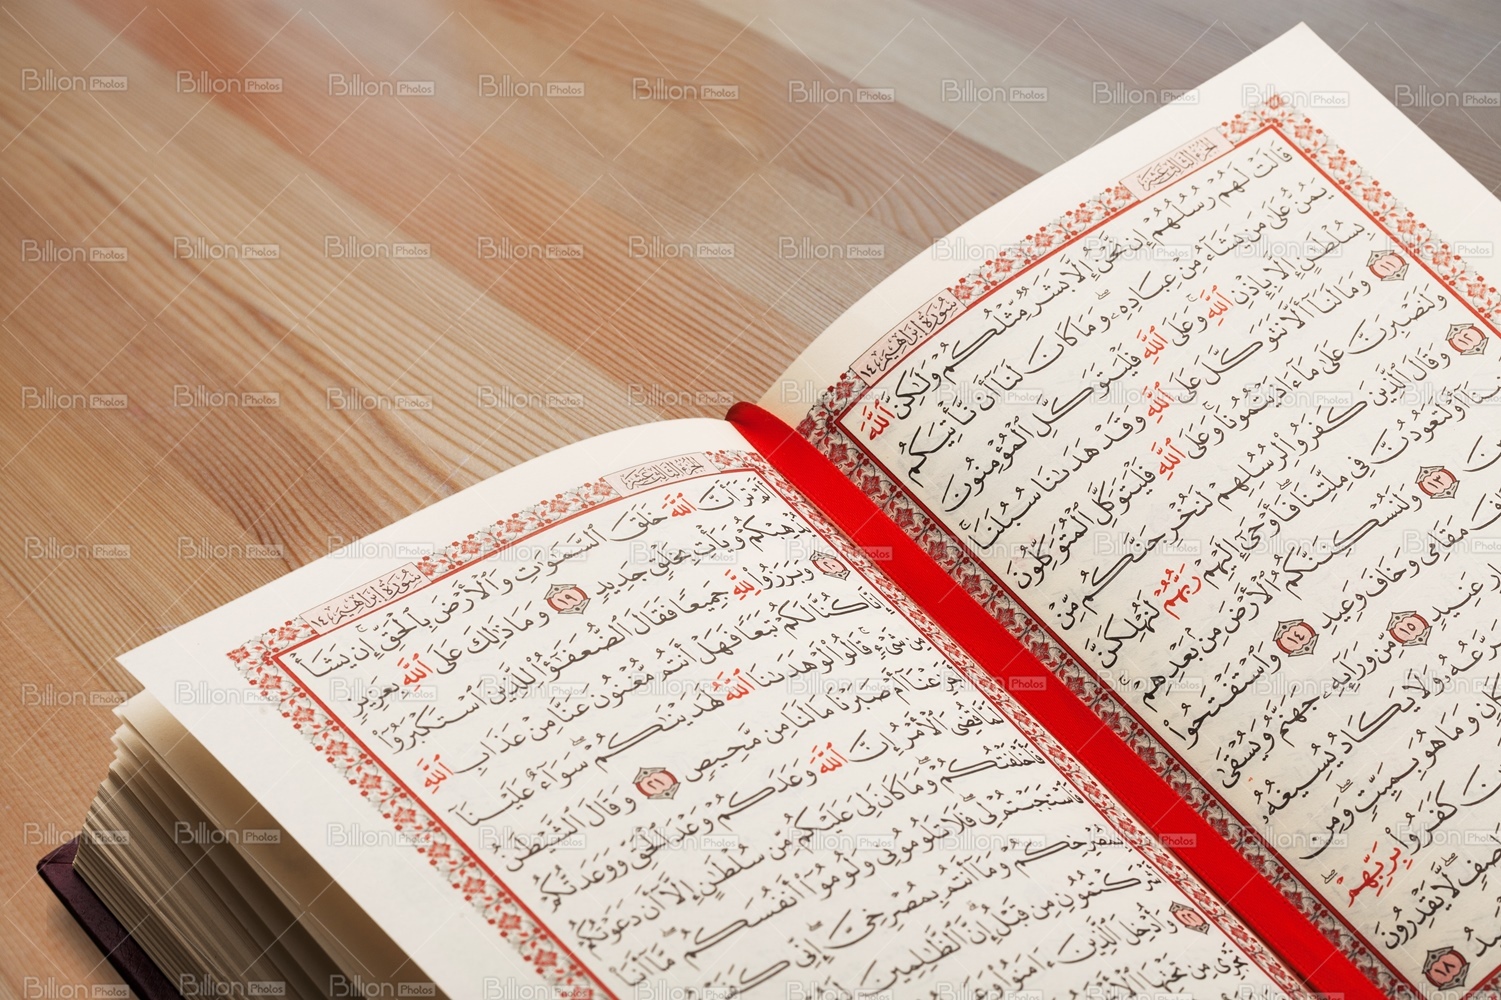 الجزء الثالث عشر
سُورَةُ إِبْرَاهِيمَ ١٤
قَالَتْ لَهُمْ رُسُلُهُمْ إِن نَّحْنُ إِلَّا بَشَرٌ مِّثْلُكُمْ وَلَٰكِنَّ ٱللَّهَ
يَمُنُّ عَلَىٰ مَن يَشَآءُ مِنْ عِبَادِهِۦ ۖ وَمَا كَانَ لَنَآ أَن نَّأْتِيَكُم
بِسُلْطَٰنٍ إِلَّا بِإِذْنِ ٱللَّهِ ۚ وَعَلَى ٱللَّهِ فَلْيَتَوَكَّلِ ٱلْمُؤْمِنُونَ
١١ وَمَا لَنَآ أَلَّا نَتَوَكَّلَ عَلَى ٱللَّهِ وَقَدْ هَدَىٰنَا سُبُلَنَا ۚ
وَلَنَصْبِرَنَّ عَلَىٰ مَآ ءَاذَيْتُمُونَا ۚ وَعَلَى ٱللَّهِ فَلْيَتَوَكَّلِ ٱلْمُتَوَكِّلُونَ
١٢ وَقَالَ ٱلَّذِينَ كَفَرُوا۟ لِرُسُلِهِمْ لَنُخْرِجَنَّكُم مِّنْ
أَوْ لَتَعُودُنَّ فِى مِلَّتِنَا ۖ فَأَوْحَىٰٓ إِلَيْهِمْ رَبُّهُمْ لَنُهْلِكَنَّ
١٣ وَلَنُسْكِنَنَّكُمُ ٱلْأَرْضَ مِنۢ بَعْدِهِمْ ۚ
مَقَامِى وَخَافَ وَعِيدِ ١٤ وَٱسْتَفْتَحُوا۟
عَنِيدٍ ١٥ مِّن وَرَآئِهِۦ جَهَنَّمُ وَيُسْقَىٰ
وَلَا يَكَادُ يُسِيغُهُۥ
وَمَا هُوَ بِمَيِّتٍ ۖ وَمِن
كَفَرُوا۟ بِرَبِّهِمْ ۖ
لَّا يَقْدِرُونَ
١٨
الجزء الثالث عشر
سُورَةُ إِبْرَاهِيمَ ١٤
أَلَمْ تَرَ أَنَّ ٱللَّهَ خَلَقَ ٱلسَّمَٰوَٰتِ وَٱلْأَرْضَ بِٱلْحَقِّ ۚ إِن يَشَأْ
يُذْهِبْكُمْ وَيَأْتِ بِخَلْقٍ جَدِيدٍ ١٩ وَمَا ذَٰلِكَ عَلَى ٱللَّهِ بِعَزِيزٍ
٢٠ وَبَرَزُوا۟ لِلَّهِ جَمِيعًا فَقَالَ ٱلضُّعَفَٰٓؤُا۟ لِلَّذِينَ ٱسْتَكْبَرُوٓا۟
إِنَّا كُنَّا لَكُمْ تَبَعًا فَهَلْ أَنتُم مُّغْنُونَ عَنَّا مِنْ عَذَابِ ٱللَّهِ
مِن شَىْءٍ ۚ قَالُوا۟ لَوْ هَدَىٰنَا ٱللَّهُ لَهَدَيْنَٰكُمْ ۖ سَوَآءٌ عَلَيْنَآ
أَجَزِعْنَآ أَمْ صَبَرْنَا مَا لَنَا مِن مَّحِيصٍ ٢١ وَقَالَ ٱلشَّيْطَٰنُ
لَمَّا قُضِىَ ٱلْأَمْرُ إِنَّ ٱللَّهَ وَعَدَكُمْ وَعْدَ ٱلْحَقِّ وَوَعَدتُّكُمْ
فَأَخْلَفْتُكُمْ ۖ وَمَا كَانَ لِىَ عَلَيْكُم مِّن سُلْطَٰنٍ إِلَّآ أَن دَعَوْتُكُمْ
فَٱسْتَجَبْتُمْ لِى ۖ فَلَا تَلُومُونِى وَلُومُوٓا۟ أَنفُسَكُم ۖ مَّآ أَنَا۠
بِمُصْرِخِكُمْ وَمَآ أَنتُم بِمُصْرِخِىَّ ۖ إِنِّى كَفَرْتُ
أَشْرَكْتُمُونِ مِن قَبْلُ ۗ إِنَّ ٱلظَّٰلِمِينَ
٢٢ وَأُدْخِلَ ٱلَّذِينَ ءَامَنُوا۟
تَجْرِى مِن تَحْتِهَا
Billion Photos